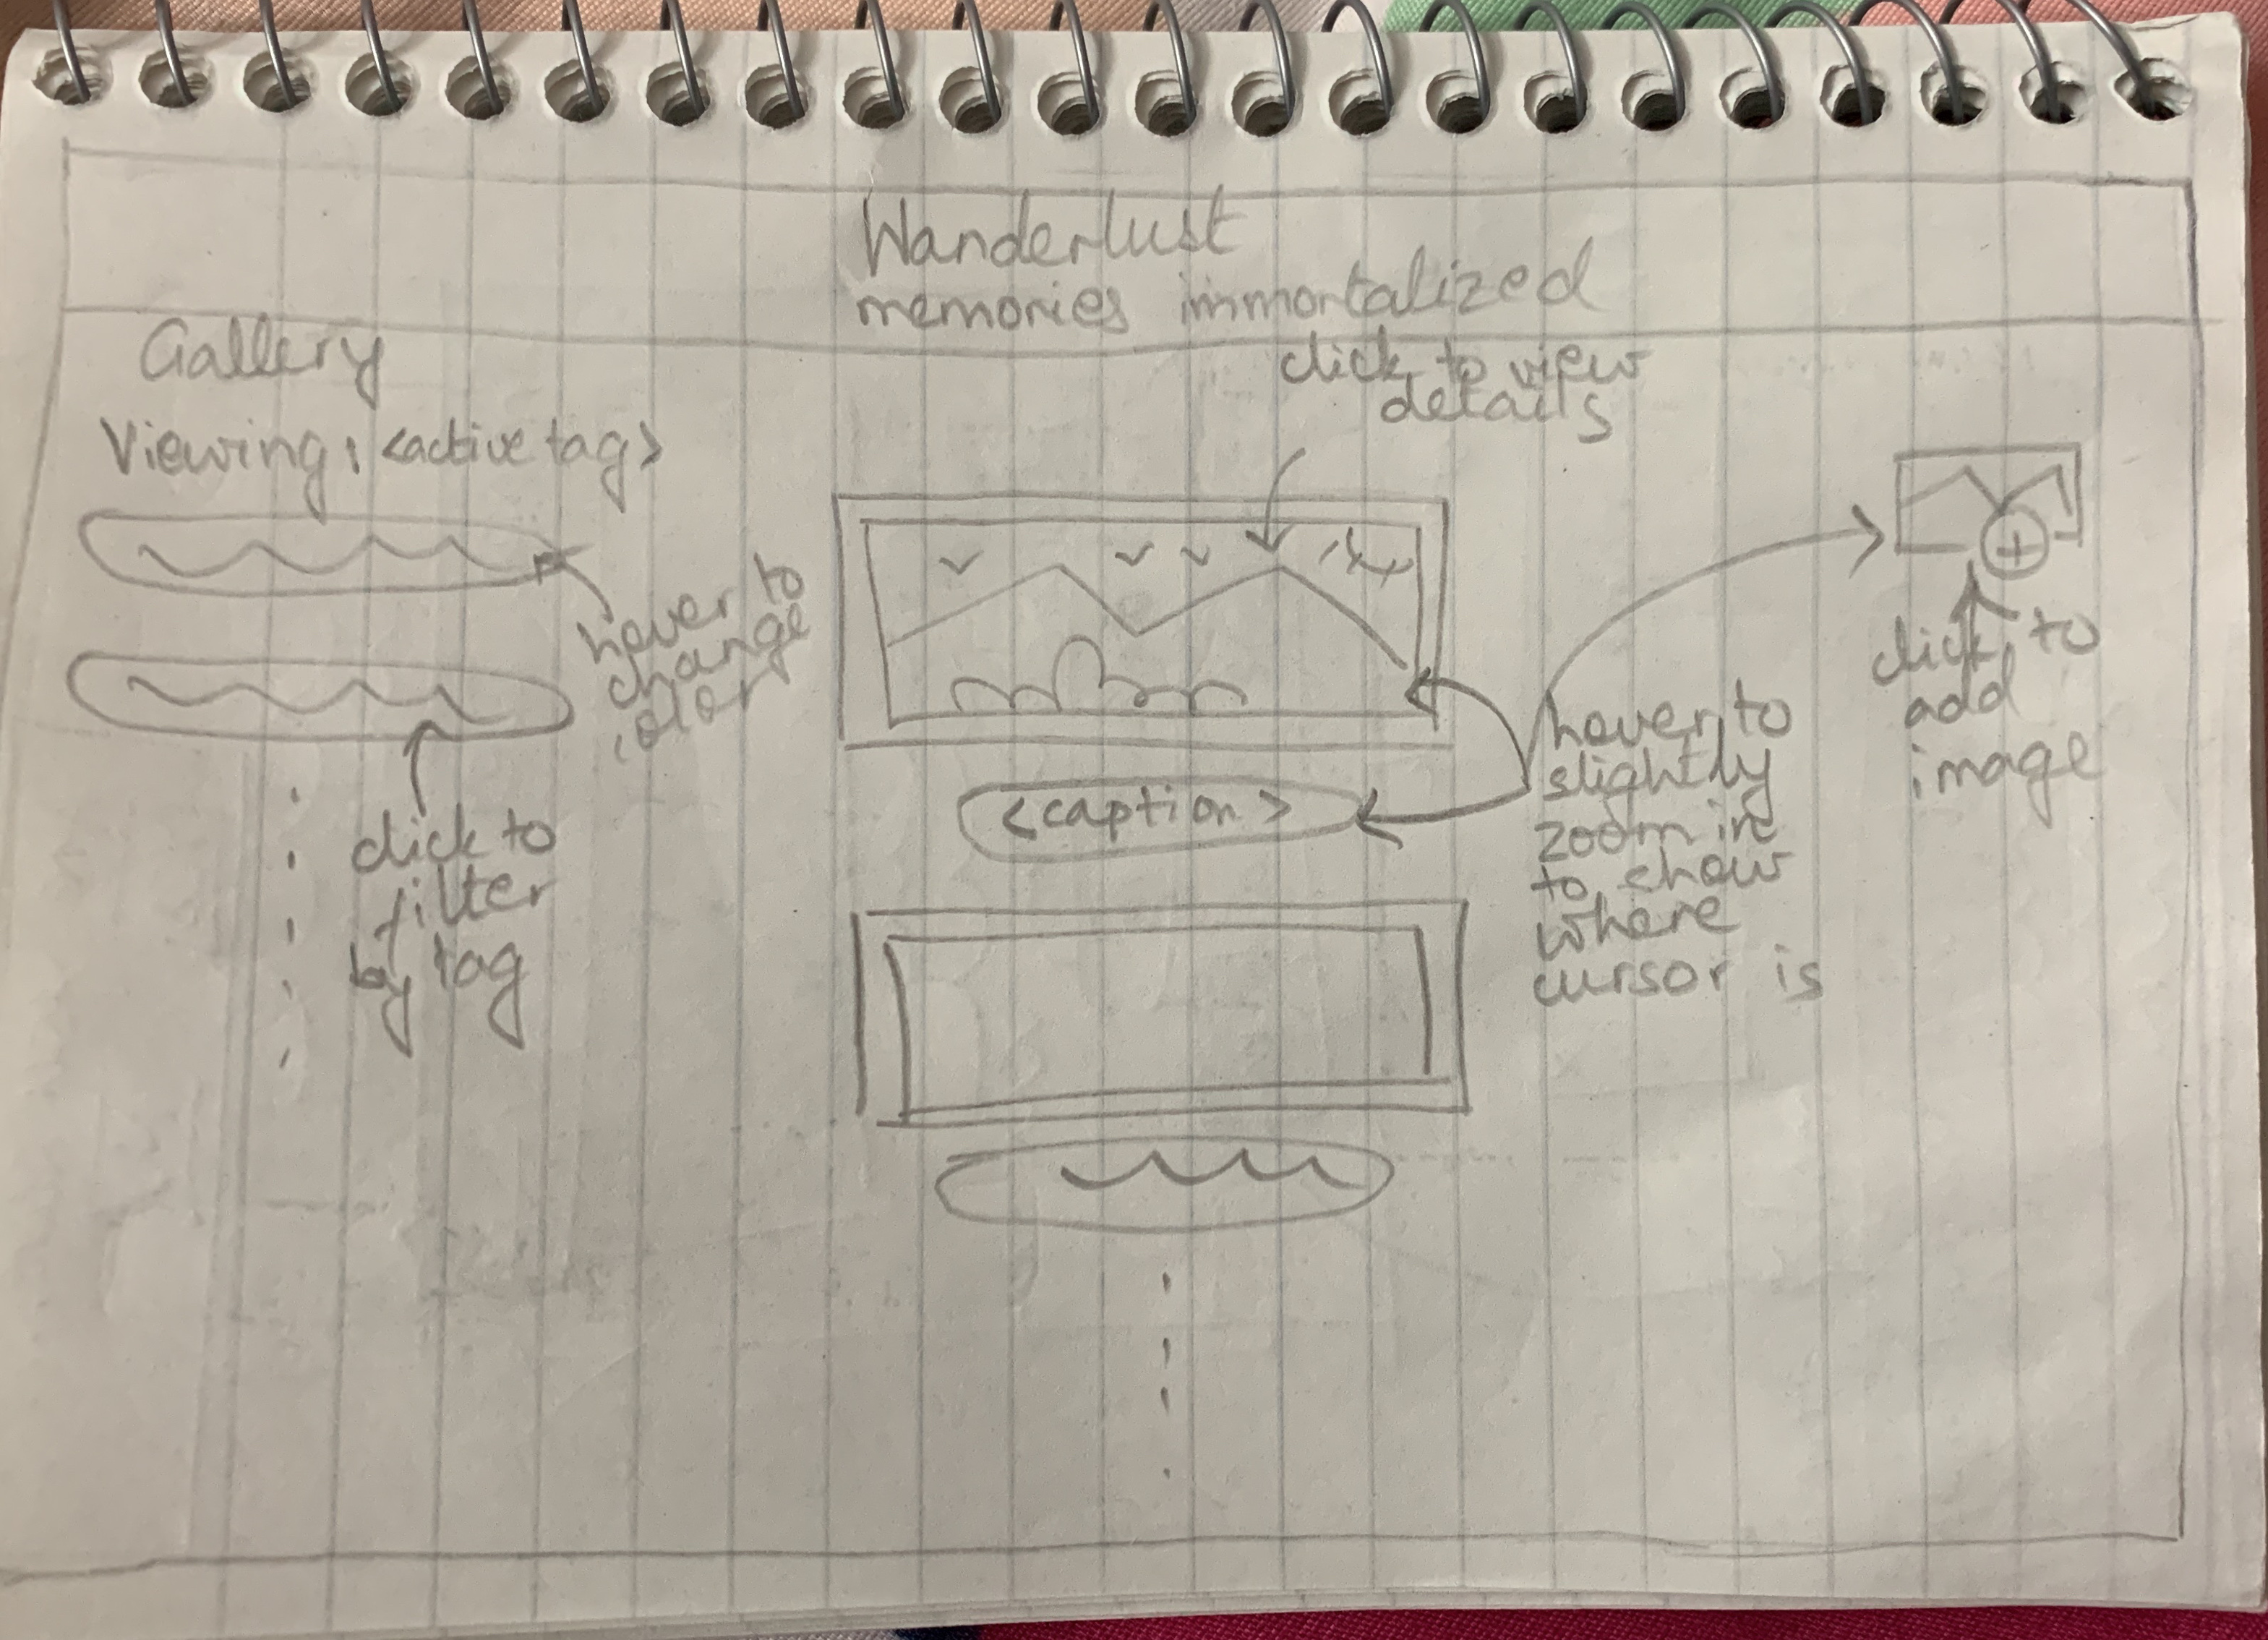 Wanderlust
memories immortalized
Gallery
Viewing: <active tag>
hover to
change
color
click to
filter
by tag
click to view
details
<caption>
hover to
slightly
zoom in
to show
where
cursor is
click to
add
image